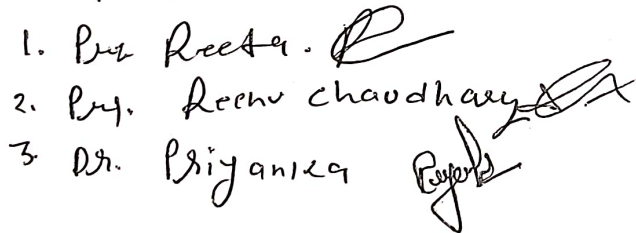 1. Prof. Reeta.
2. Prof. Reenu Chaudhary
3. Dr. Priyanka